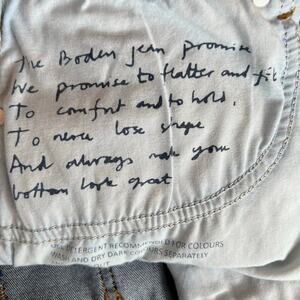 The Boden jean promise
We promise to flatter and fit
To comfort and to hold,
To never lose shape
And always make your
bottom look great
DETERGENT RECOMMENDED FOR COLOURS
WASH AND DRY DARK COLOURS SEPARATELY
OUT